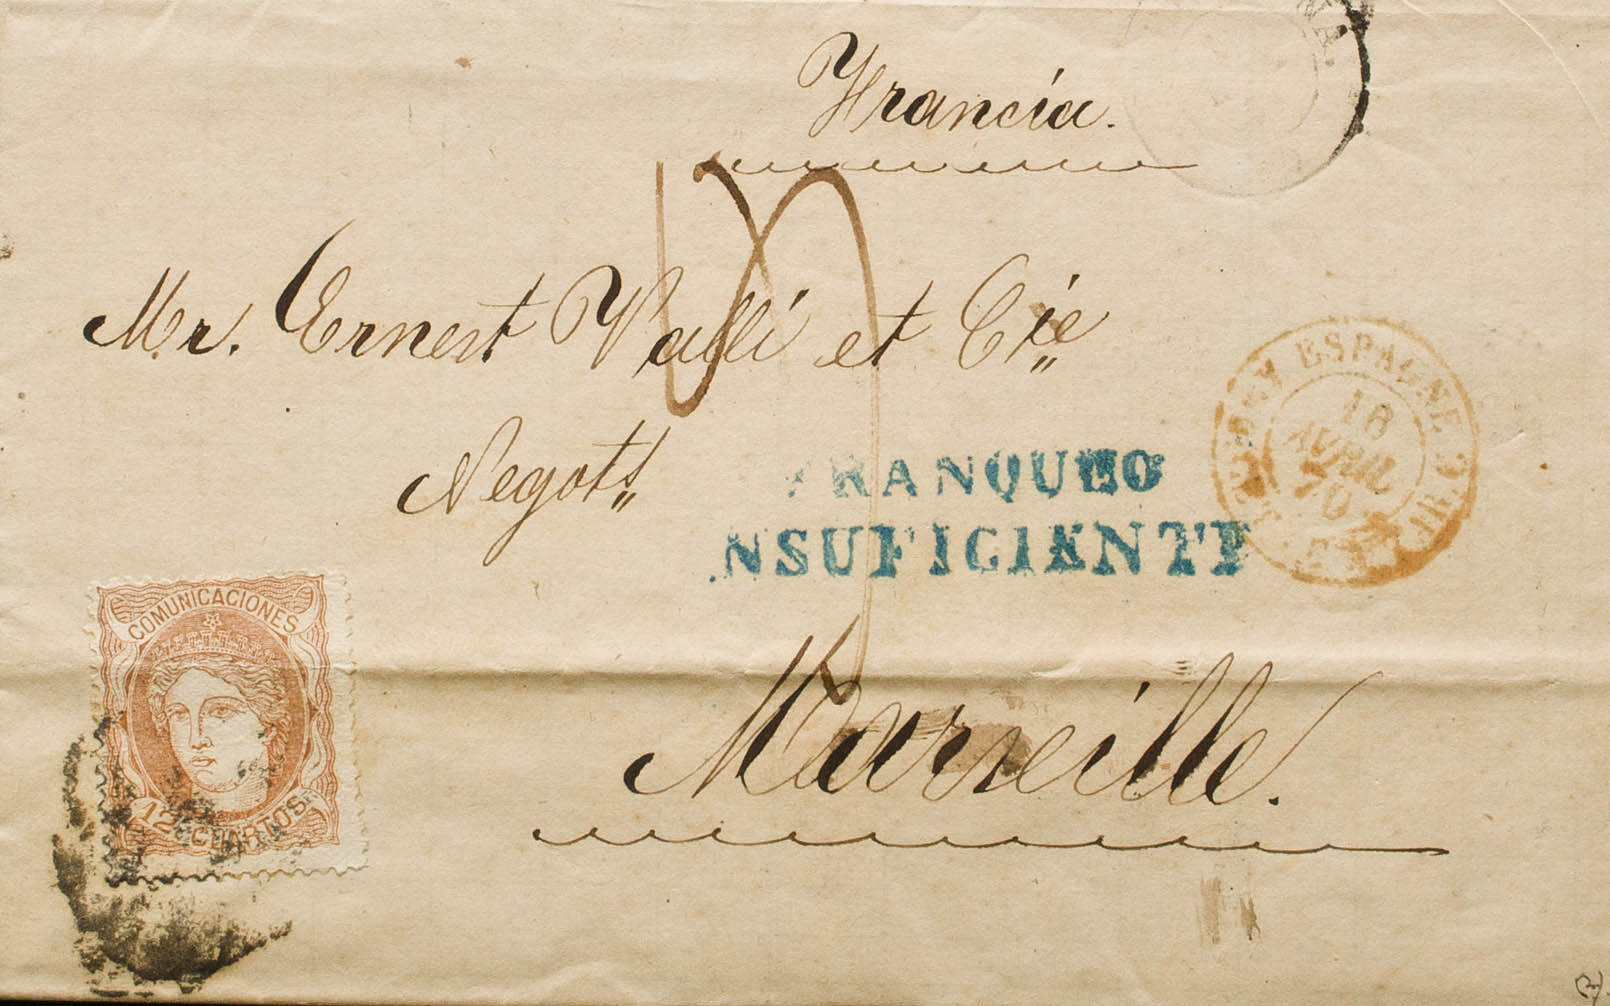 Francia.
Mr. Ernest Valli et Cie
Negots
FRANQUEO
INSUFICIENTE
ESPAGNE
18
AVRIL
70
COMUNICACIONES
12 CUARTOS
Marseille.